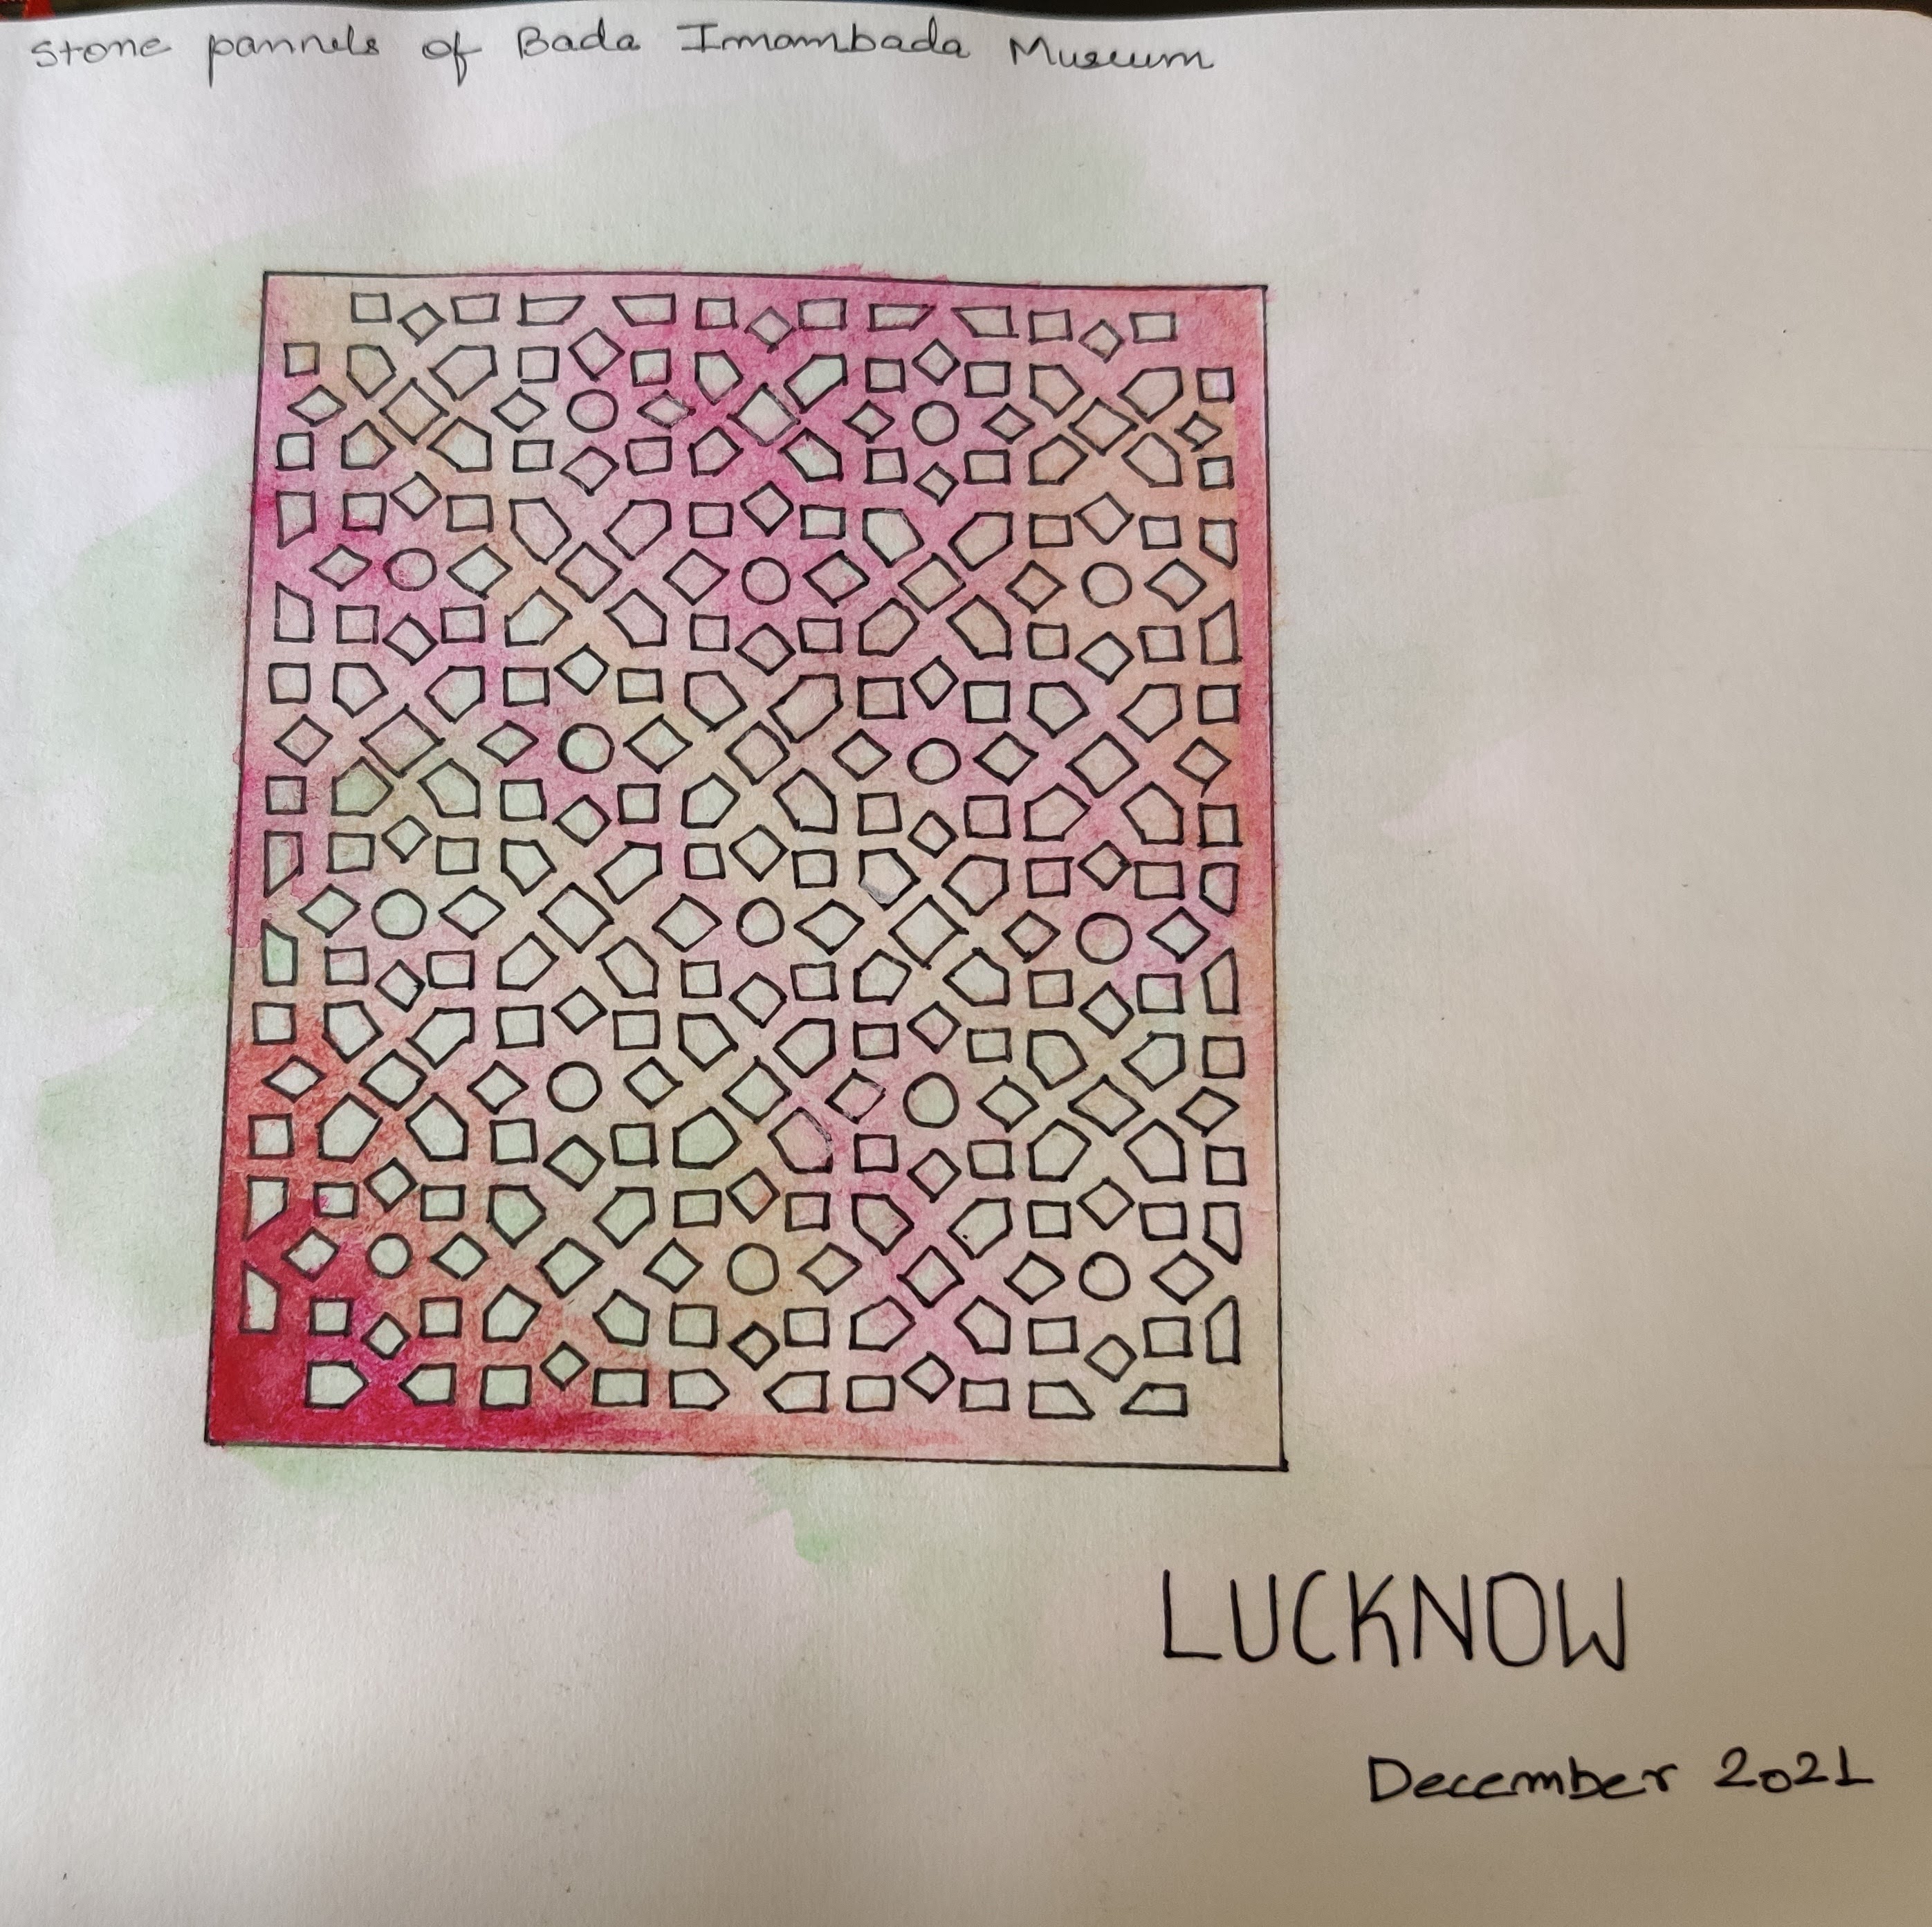 Stone pannels of Bada Imambada Museum
LUCKNOW
December 2021